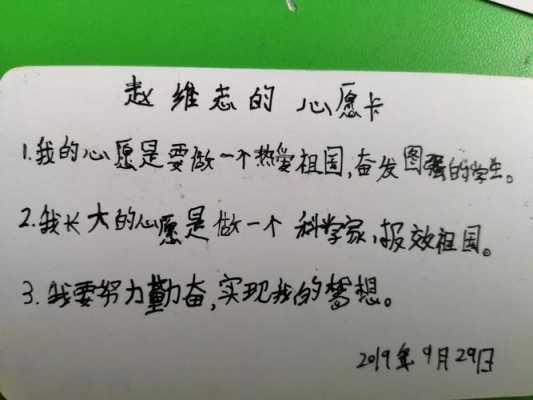 赵维志的 心愿卡
1.我的心愿是要做一个热爱祖国,奋发图强的学生。
2.我长大的心愿是做一个 科学家,报效祖国。
3.我要努力勤奋,实现我的梦想。
2019年9月29日